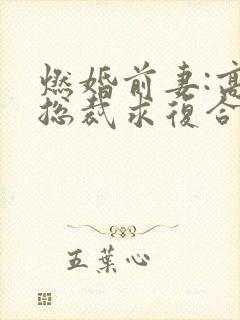 燃婚前妻:高
总裁求復合
五葉心